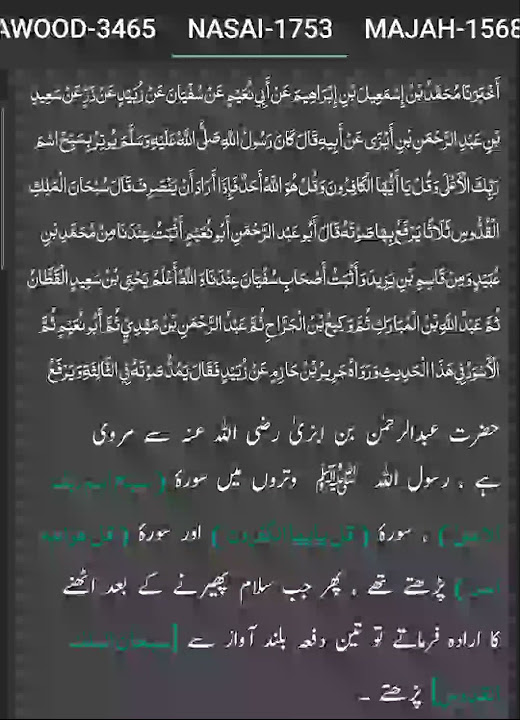 AWOOD-3465 NASAI-1753 MAJAH-1568
أَخْبَرَنَا مُحَمَّدُ بْنُ إِسْمَعِيلَ بْنِ إِبْرَاهِيمَ عَنْ أَبِي نُعَيْمٍ عَنْ سُفْيَانَ عَنْ زُبَيْدٍ عَنْ ذَرٍّ عَنْ سَعِيدِ
بْنِ عَبْدِ الرَّحْمَنِ بْنِ أَبْزَى عَنْ أَبِيهِ قَالَ كَانَ رَسُولُ اللَّهِ صَلَّى اللَّهُ عَلَيْهِ وَسَلَّمَ يُوتِرُ بِسَبِّحْ اسْمَ
رَبِّكَ الْأَعْلَى وَقُلْ يَا أَيُّهَا الْكَافِرُونَ وَقُلْ هُوَ اللَّهُ أَحَدٌ فَإِذَا أَرَادَ أَنْ يَنْصَرِفَ قَالَ سُبْحَانَ الْمَلِكِ
الْقُدُّوسِ ثَلَاثًا يَرْفَعُ بِهَا صَوْتَهُ قَالَ أَبُو عَبْد الرَّحْمَنِ أَبُو نُعَيْمٍ أَثْبَتُ عِنْدَنَا مِنْ مُحَمَّدِ بْنِ
عُبَيْدٍ وَمِنْ قَاسِمِ بْنِ يَزِيدَ وَأَثْبَتُ أَصْحَابِ سُفْيَانَ عِنْدَنَا وَاللَّهُ أَعْلَمُ يَحْيَى بْنُ سَعِيدٍ الْقَطَّانُ
ثُمَّ عَبْدُ اللَّهِ بْنُ الْمُبَارَكِ ثُمَّ وَكِيعُ بْنُ الْجَرَّاحِ ثُمَّ عَبْدُ الرَّحْمَنِ بْنُ مَهْدِيٍّ ثُمَّ أَبُو نُعَيْمٍ ثُمَّ
الْأَسْوَدُ فِي هَذَا الْحَدِيثِ وَرَوَاهُ جَرِيرُ بْنُ حَازِمٍ عَنْ زُبَيْدٍ فَقَالَ يَمُدُّ صَوْتَهُ فِي الثَّالِثَةِ وَيَرْفَعُ
حضرت عبدالرحمٰن بن ابزیٰ رضی اللہ عنہ سے مروی
ہے ، رسول اللہ ﷺ وتروں میں سورۂ (
) ، سورۂ ( قل يايها الكفرون ) اور سورۂ ( قل هو الله
احد ) پڑھتے تھے ، پھر جب سلام پھیرنے کے بعد اٹھنے
کا ارادہ فرماتے تو تین دفعہ بلند آواز سے [
] پڑھتے ۔